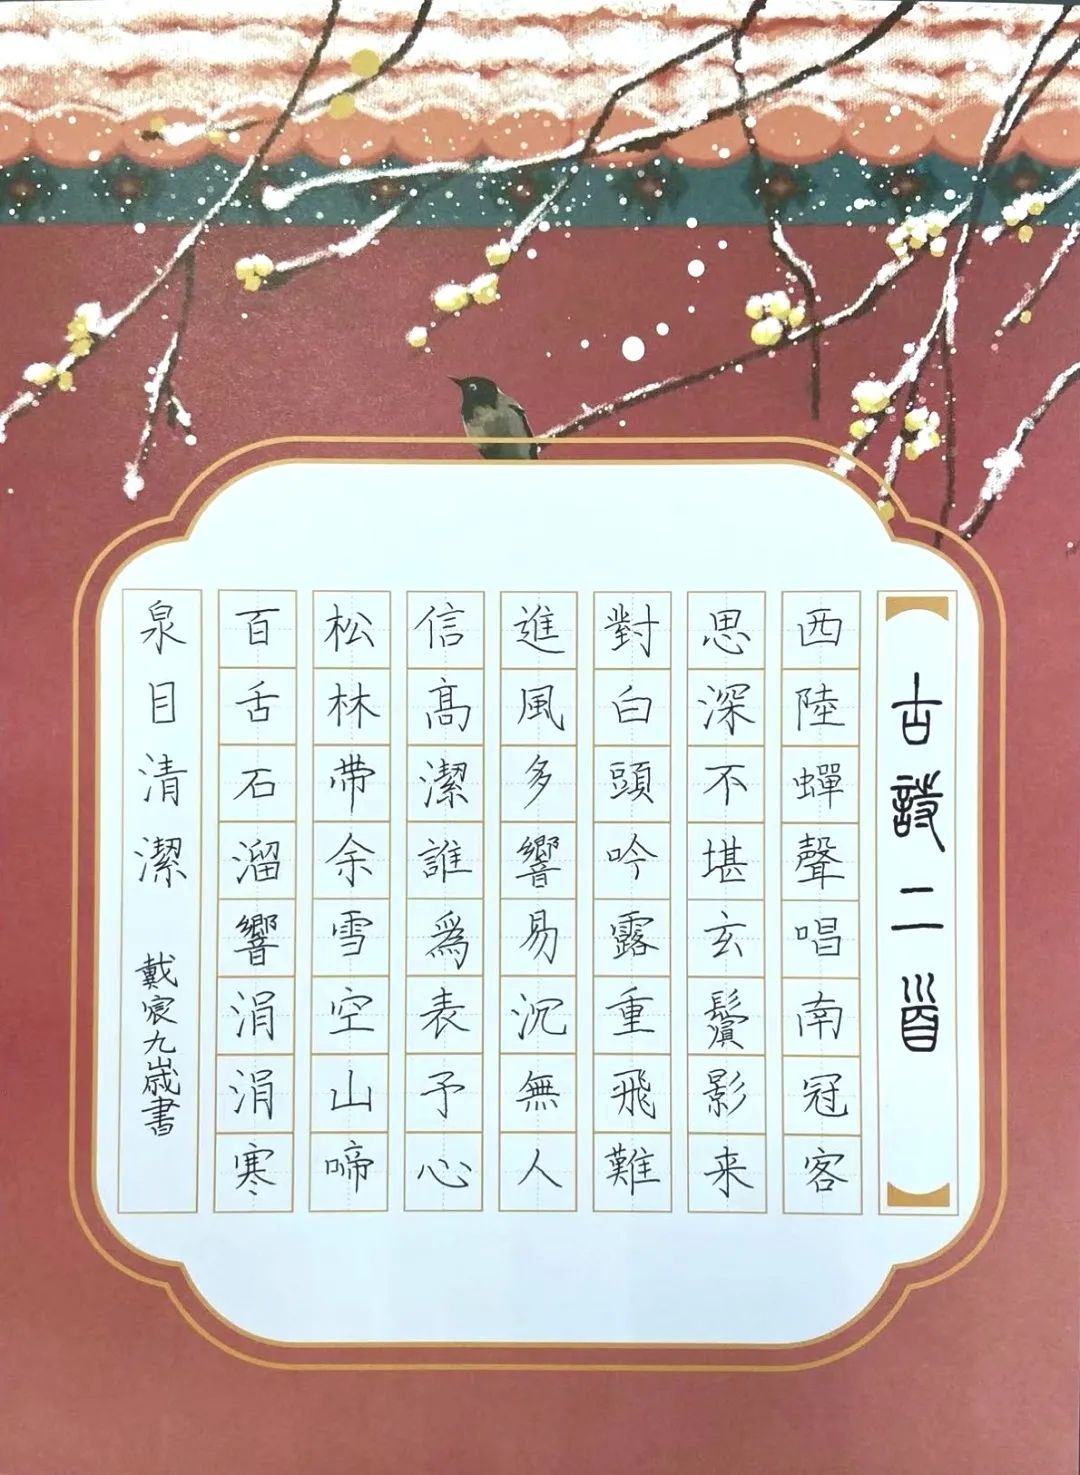 古詩二首
西陸蟬聲唱南冠客
思深不堪玄鬢影来
對白頭吟露重飛難
進風多響易沉無人
信高潔誰爲表予心
松林帶余雪空山啼
百舌石溜響涓涓寒
泉目清潔
戴宸九歳書